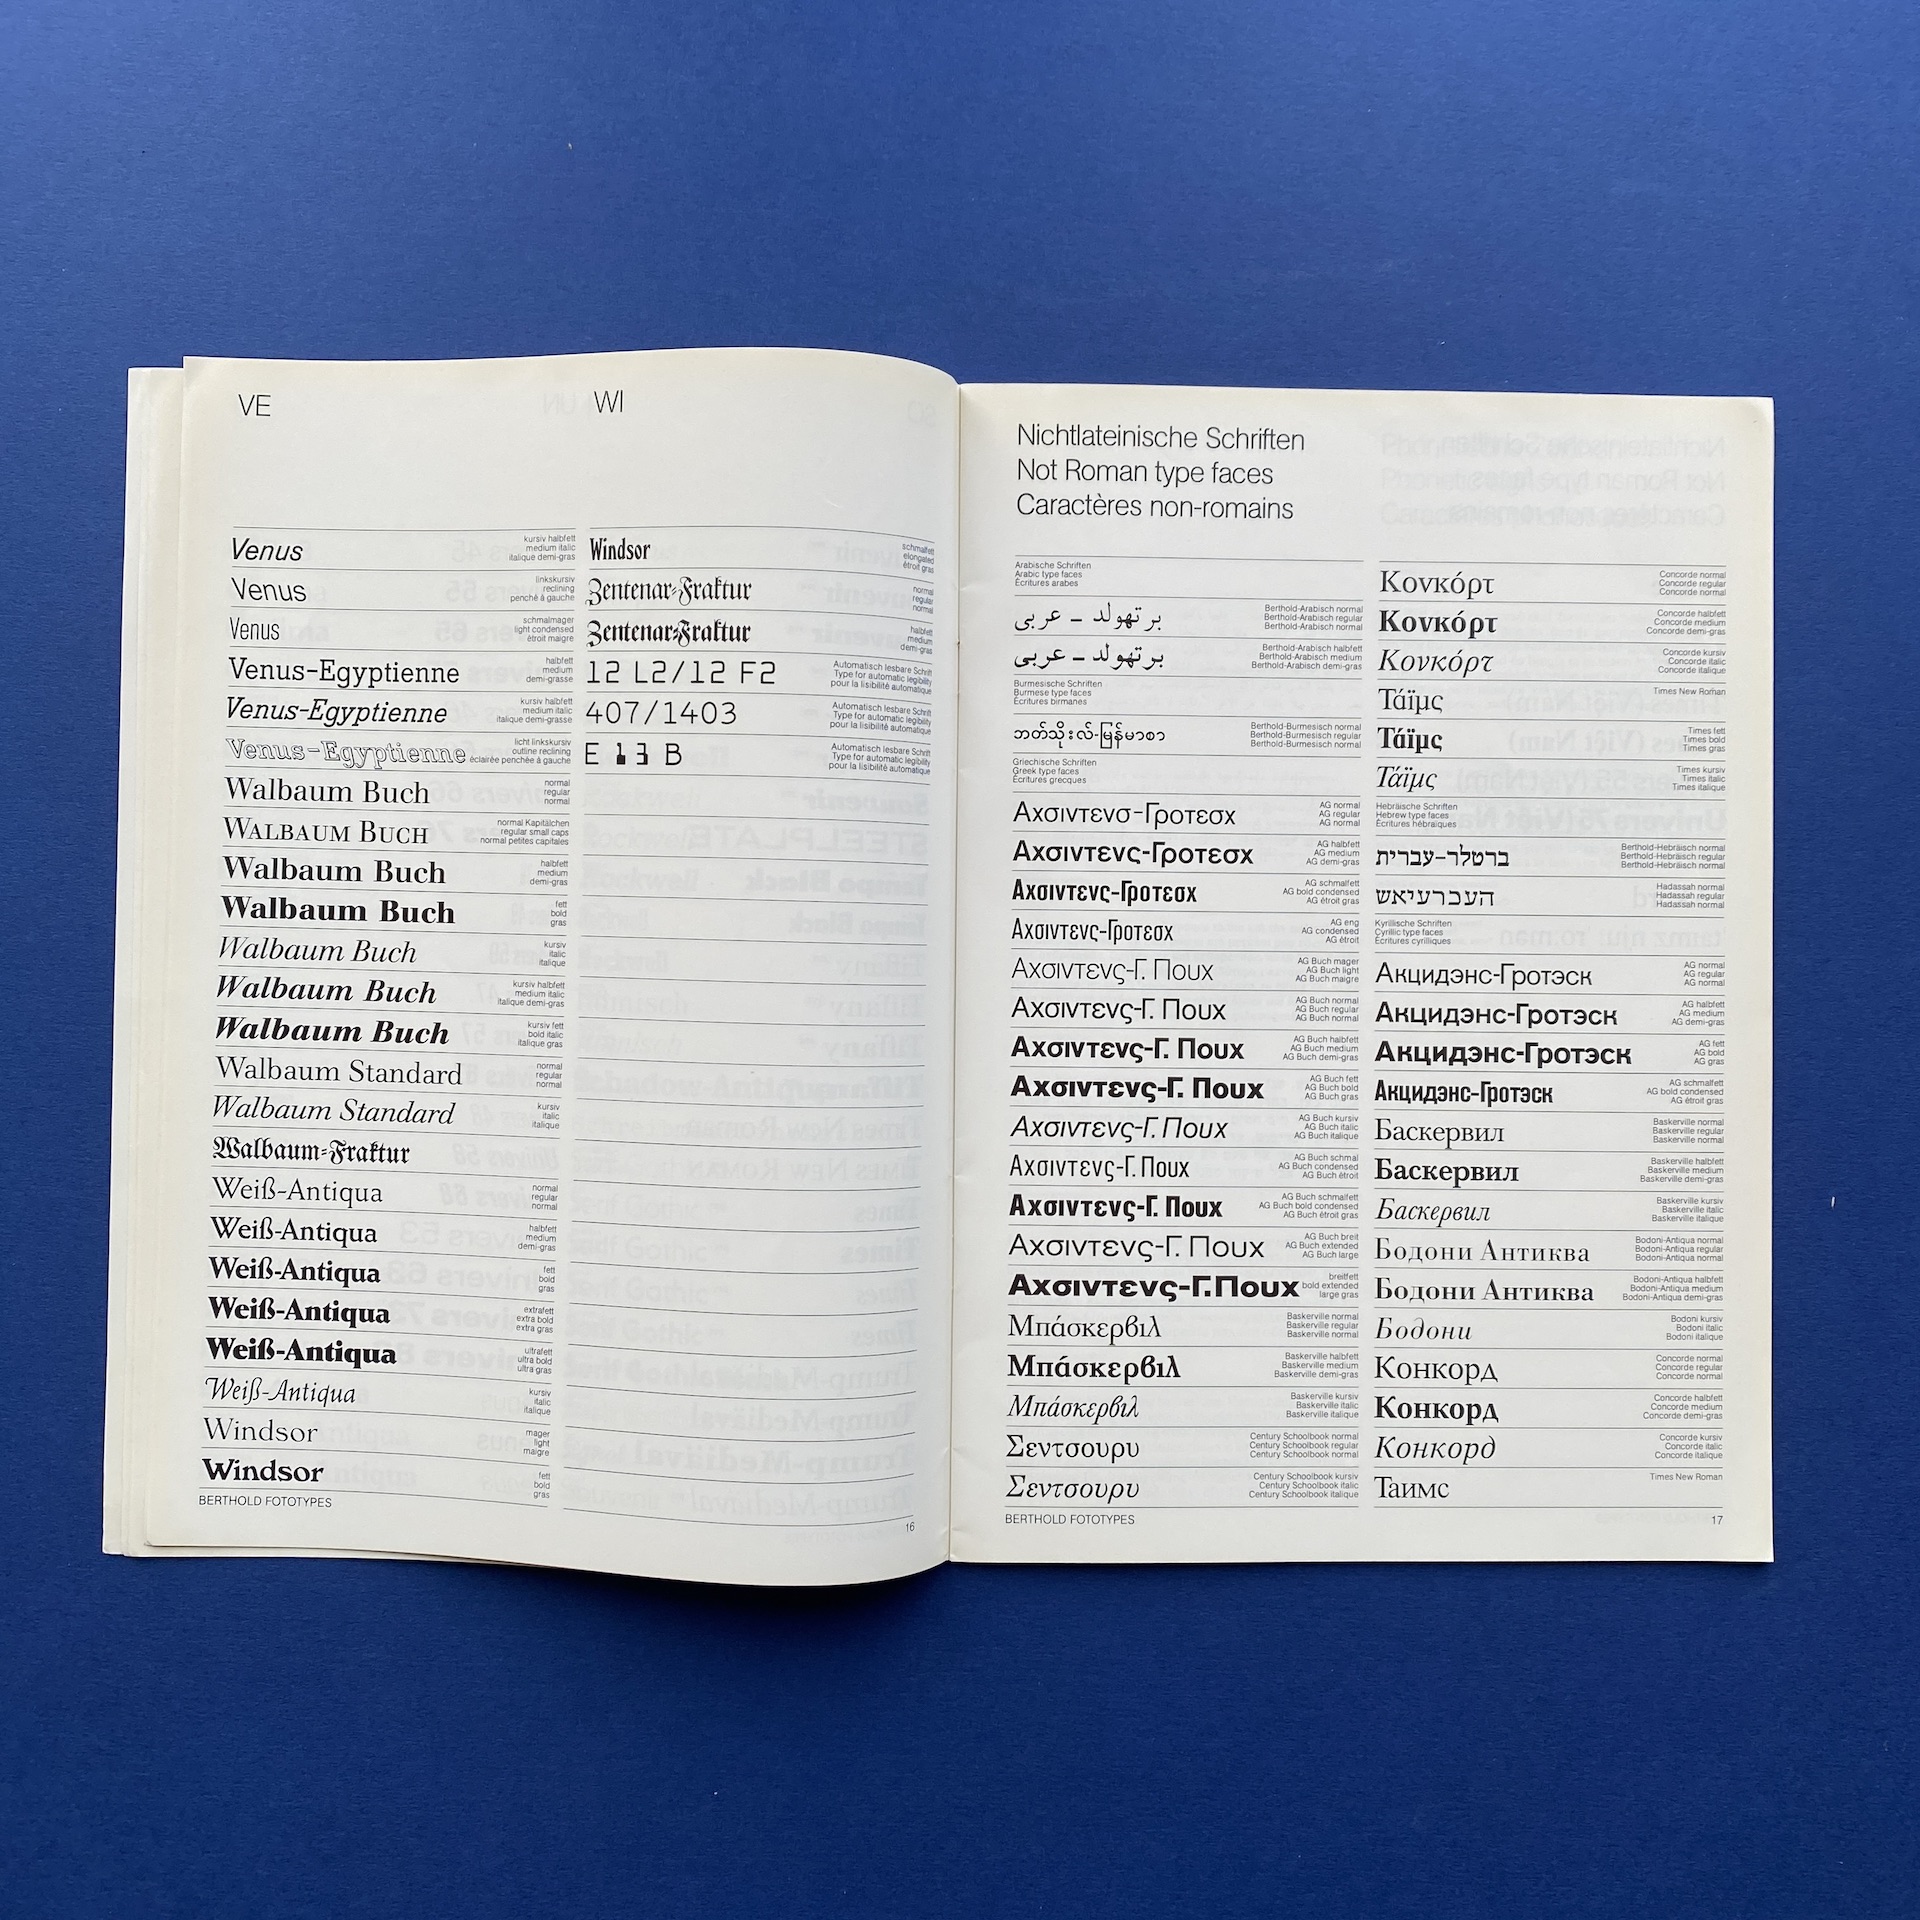 VE
Venus
kursiv halbfett
medium italic
italique demi-gras
Venus
linkskursiv
reclining
penché à gauche
Venus
schmalmager
light condensed
étroit maigre
Venus-Egyptienne
halbfett
medium
demi-grasse
Venus-Egyptienne
kursiv halbfett
medium italic
italique demi-grasse
Venus-Egyptienne
licht linkskursiv
outline reclining
éclairée penchée à gauche
Walbaum Buch
normal
regular
normal
WALBAUM BUCH
normal Kapitälchen
regular small caps
normal petites capitales
Walbaum Buch
halbfett
medium
demi-gras
Walbaum Buch
fett
bold
gras
Walbaum Buch
kursiv
italic
italique
Walbaum Buch
kursiv halbfett
medium italic
italique demi-gras
Walbaum Buch
kursiv fett
bold italic
italique gras
Walbaum Standard
normal
regular
normal
Walbaum Standard
kursiv
italic
italique
Walbaum-Fraktur
Weiß-Antiqua
normal
regular
normal
Weiß-Antiqua
halbfett
medium
demi-gras
Weiß-Antiqua
fett
bold
gras
Weiß-Antiqua
extrafett
extra bold
extra gras
Weiß-Antiqua
ultrafett
ultra bold
ultra gras
Weiß-Antiqua
kursiv
italic
italique
Windsor
mager
light
maigre
Windsor
fett
bold
gras
BERTHOLD FOTOTYPES
WI
Windsor
schmalfett
elongated
étroit gras
Zentenar-Fraktur
normal
regular
normal
Zentenar-Fraktur
halbfett
medium
demi-gras
12 L2/12 F2
Automatisch lesbare Schrift
Type for automatic legibility
pour la lisibilité automatique
407/1403
Automatisch lesbare Schrift
Type for automatic legibility
pour la lisibilité automatique
E 13 B
Automatisch lesbare Schrift
Type for automatic legibility
pour la lisibilité automatique
16
Nichtlateinische Schriften
Not Roman type faces
Caractères non-romains
Arabische Schriften
Arabic type faces
Écritures arabes
برتهولد – عربى
Berthold-Arabisch normal
Berthold-Arabisch regular
Berthold-Arabisch normal
برتهولد – عربى
Berthold-Arabisch halbfett
Berthold-Arabisch medium
Berthold-Arabisch demi-gras
Burmesische Schriften
Burmese type faces
Écritures birmanes
ဘတ်သိုးလ်-မြန်မာစာ
Berthold-Burmesisch normal
Berthold-Burmesisch regular
Berthold-Burmesisch normal
Griechische Schriften
Greek type faces
Écritures grecques
Αχσιντενσ-Γροτεσχ
AG normal
AG regular
AG normal
Αχσιντενς-Γροτεσχ
AG halbfett
AG medium
AG demi-gras
Αχσιντενς-Γροτεσχ
AG schmalfett
AG bold condensed
AG étroit gras
Αχσιντενς-Γροτεσχ
AG eng
AG condensed
AG étroit
Αχσιντενς-Γ. Πουχ
AG Buch mager
AG Buch light
AG Buch maigre
Αχσιντενς-Γ. Πουχ
AG Buch normal
AG Buch regular
AG Buch normal
Αχσιντενς-Γ. Πουχ
AG Buch halbfett
AG Buch medium
AG Buch demi-gras
Αχσιντενς-Γ. Πουχ
AG Buch fett
AG Buch bold
AG Buch gras
Αχσιντενς-Γ. Πουχ
AG Buch kursiv
AG Buch italic
AG Buch italique
Αχσιντενς-Γ. Πουχ
AG Buch schmal
AG Buch condensed
AG Buch étroit
Αχσιντενς-Γ. Πουχ
AG Buch schmalfett
AG Buch bold condensed
AG Buch étroit gras
Αχσιντενς-Γ. Πουχ
AG Buch breit
AG Buch extended
AG Buch large
Αχσιντενς-Γ.Πουχ
breitfett
bold extended
large gras
Μπάσκερβιλ
Baskerville normal
Baskerville regular
Baskerville normal
Μπάσκερβιλ
Baskerville halbfett
Baskerville medium
Baskerville demi-gras
Μπάσκερβιλ
Baskerville kursiv
Baskerville italic
Baskerville italique
Σεντσουρυ
Century Schoolbook normal
Century Schoolbook regular
Century Schoolbook normal
Σεντσουρυ
Century Schoolbook kursiv
Century Schoolbook italic
Century Schoolbook italique
BERTHOLD FOTOTYPES
Κονκόρτ
Concorde normal
Concorde regular
Concorde normal
Κονκόρτ
Concorde halbfett
Concorde medium
Concorde demi-gras
Κονκόρτ
Concorde kursiv
Concorde italic
Concorde italique
Τάϊμς
Times New Roman
Τάϊμς
Times fett
Times bold
Times gras
Τάϊμς
Times kursiv
Times italic
Times italique
Hebräische Schriften
Hebrew type faces
Écritures hébraïques
ברטלר-עברית
Berthold-Hebräisch normal
Berthold-Hebräisch regular
Berthold-Hebräisch normal
העכרעיאש
Hadassah normal
Hadassah regular
Hadassah normal
Kyrillische Schriften
Cyrillic type faces
Écritures cyrilliques
Акцидэнс-Гротэск
AG normal
AG regular
AG normal
Акцидэнс-Гротэск
AG halbfett
AG medium
AG demi-gras
Акцидэнс-Гротэск
AG fett
AG bold
AG gras
Акцидэнс-Гротэск
AG schmalfett
AG bold condensed
AG étroit gras
Баскервил
Baskerville normal
Baskerville regular
Baskerville normal
Баскервил
Baskerville halbfett
Baskerville medium
Baskerville demi-gras
Баскервил
Baskerville kursiv
Baskerville italic
Baskerville italique
Бодони Антиква
Bodoni-Antiqua normal
Bodoni-Antiqua regular
Bodoni-Antiqua normal
Бодони Антиква
Bodoni-Antiqua halbfett
Bodoni-Antiqua medium
Bodoni-Antiqua demi-gras
Бодони
Bodoni kursiv
Bodoni italic
Bodoni italique
Конкорд
Concorde normal
Concorde regular
Concorde normal
Конкорд
Concorde halbfett
Concorde medium
Concorde demi-gras
Конкорд
Concorde kursiv
Concorde italic
Concorde italique
Таимс
Times New Roman
17